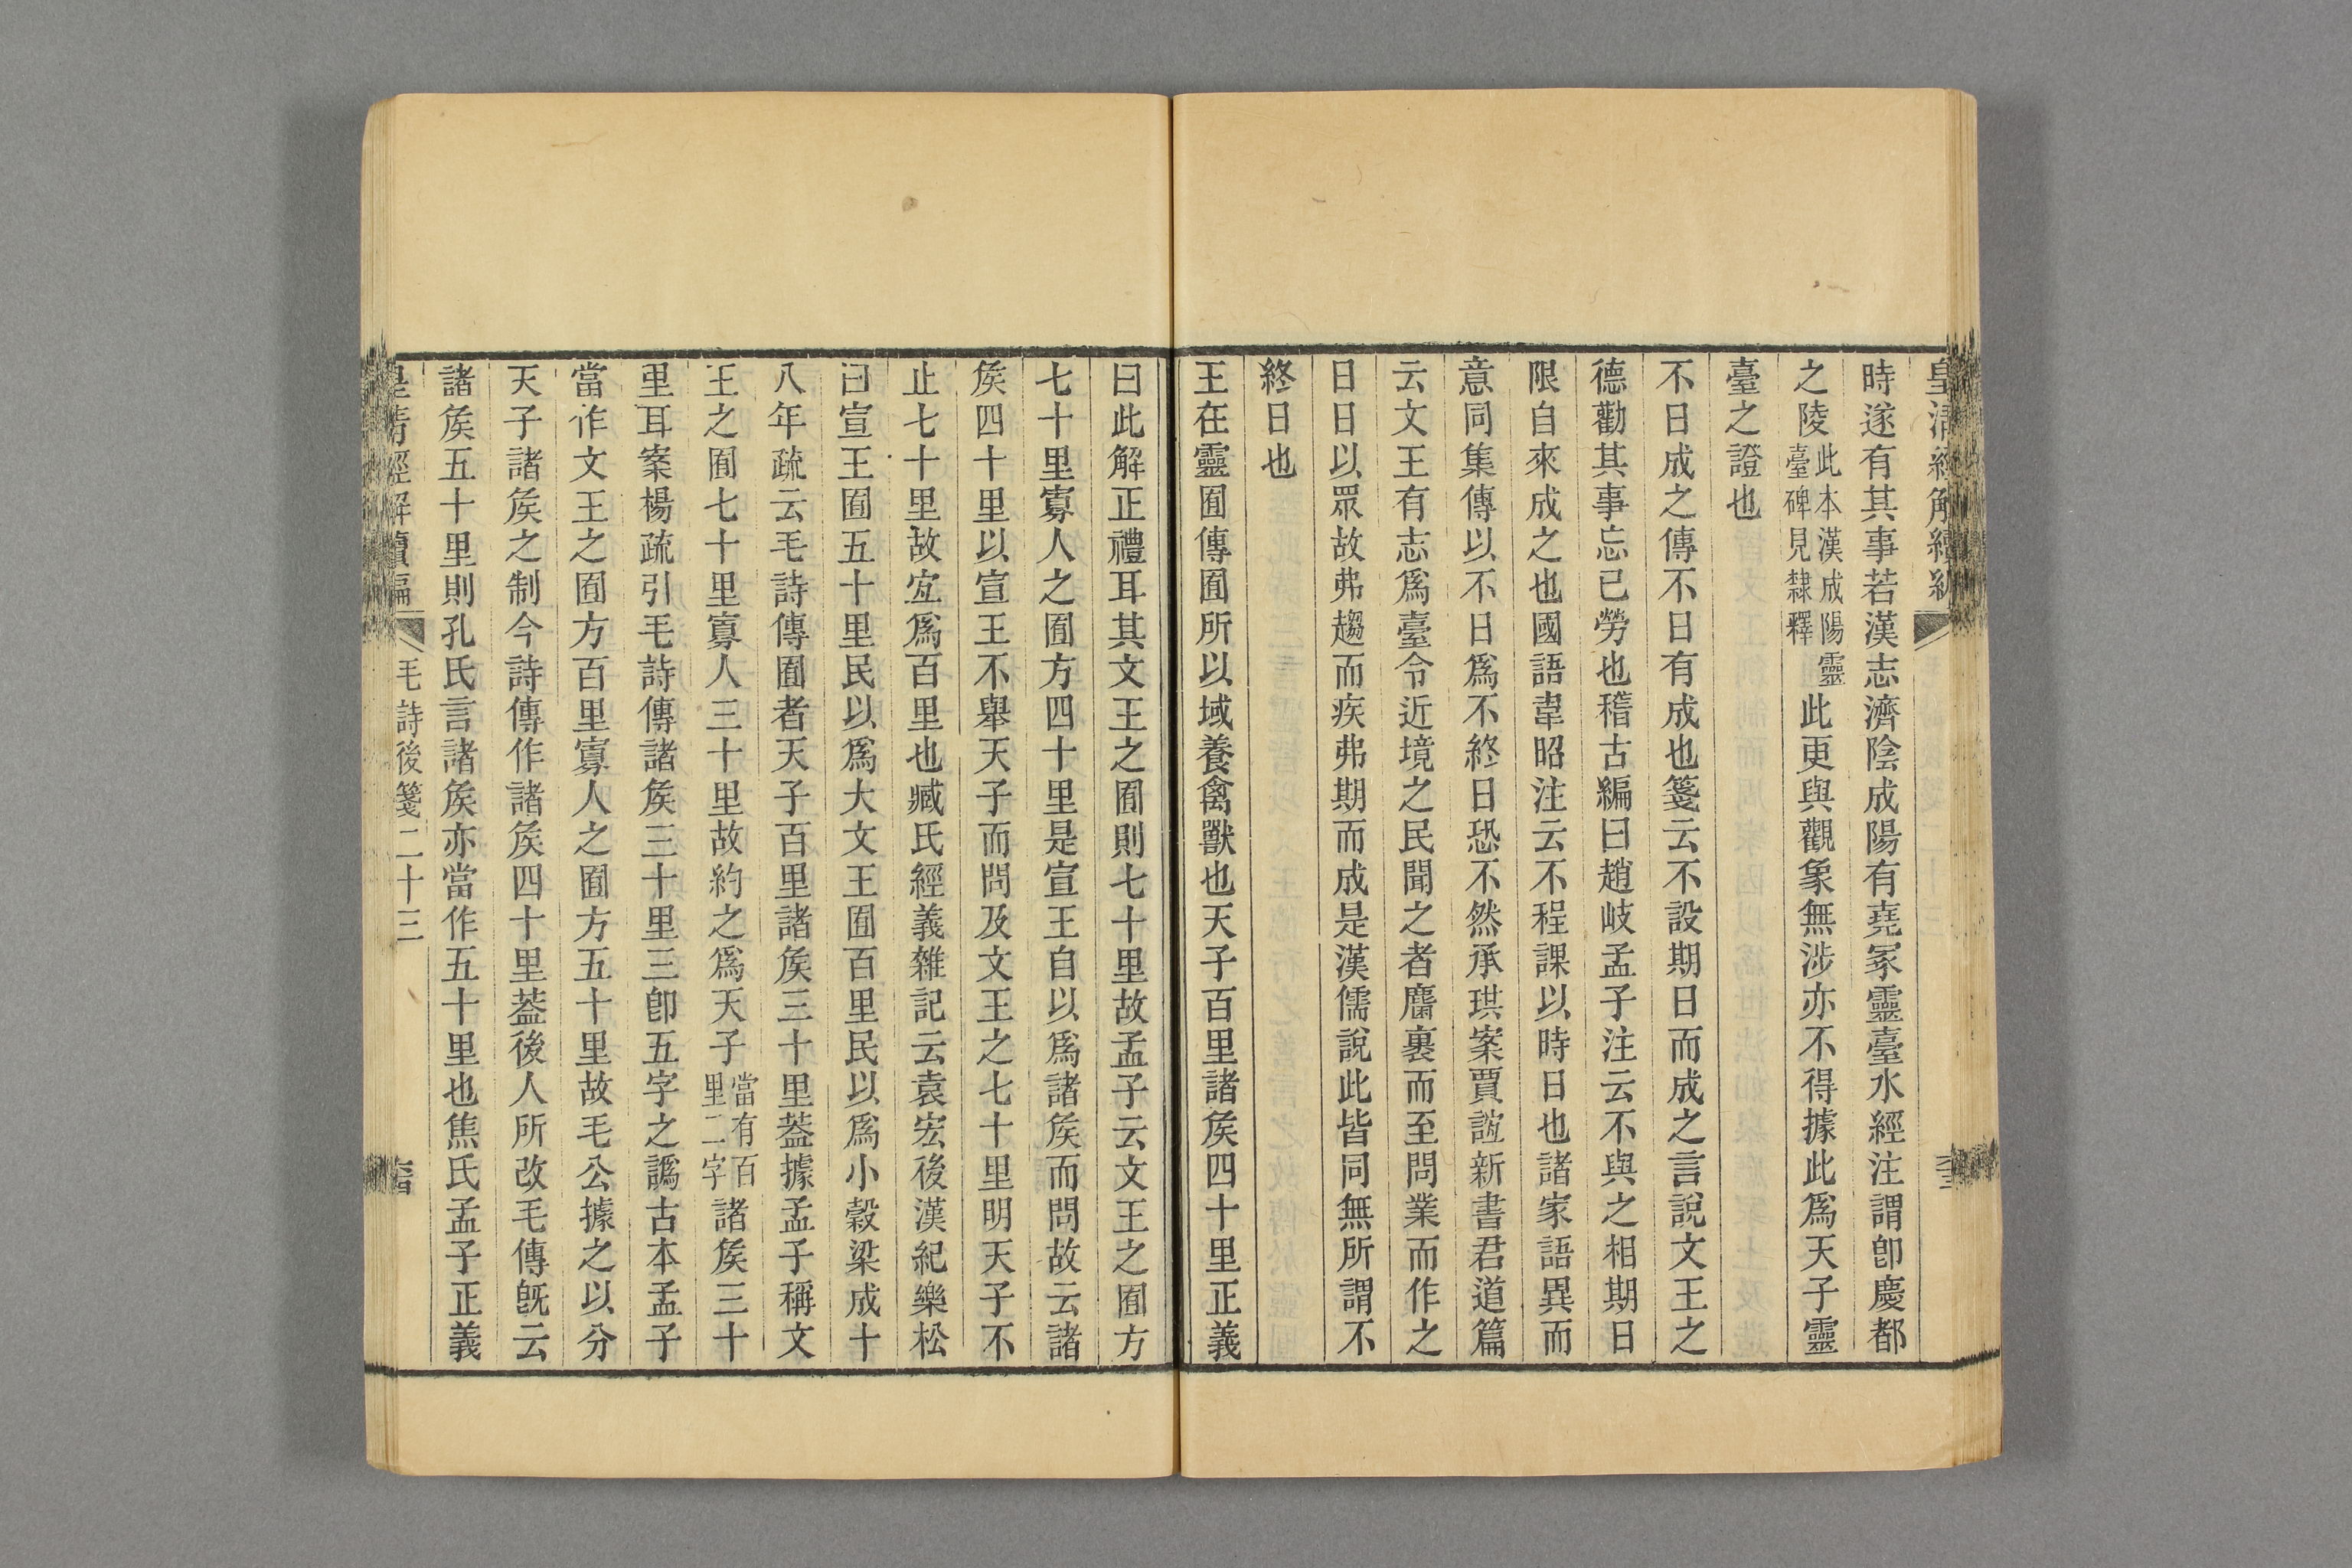 皇清經解續編
時遂有其事若漢志濟陰成陽有堯冢靈臺水經注謂卽慶都
之陵此本漢成陽靈臺碑見隸釋此更與觀象無涉亦不得據此爲天子靈
臺之證也
不日成之傳不日有成也箋云不設期日而成之言說文王之
德勸其事忘己勞也稽古編曰趙岐孟子注云不與之相期日
限自來成之也國語韋昭注云不程課以時日也諸家語異而
意同集傳以不日爲不終日恐不然承珙案賈誼新書君道篇
云文王有志爲臺令近境之民聞之者麕裹而至問業而作之
日日以眾故弗趨而疾弗期而成是漢儒說此皆同無所謂不
終日也
王在靈囿傳囿所以域養禽獸也天子百里諸矦四十里正義
曰此解正禮耳其文王之囿則七十里故孟子云文王之囿方
七十里寡人之囿方四十里是宣王自以爲諸矦而問故云諸
矦四十里以宣王不舉天子而問及文王之七十里明天子不
止七十里故宐爲百里也臧氏經義雜記云袁宏後漢紀樂松
曰宣王囿五十里民以爲大文王囿百里民以爲小穀梁成十
八年疏云毛詩傳囿者天子百里諸矦三十里葢據孟子稱文
王之囿七十里寡人三十里故約之爲天子當有百里二字諸矦三十
里耳案楊疏引毛詩傳諸矦三十里三卽五字之譌古本孟子
當作文王之囿方百里寡人之囿方五十里故毛公據之以分
天子諸矦之制今詩傳作諸矦四十里葢後人所改毛傳旣云
諸矦五十里則孔氏言諸矦亦當作五十里也焦氏孟子正義
皇清經解續編 毛詩後箋二十三